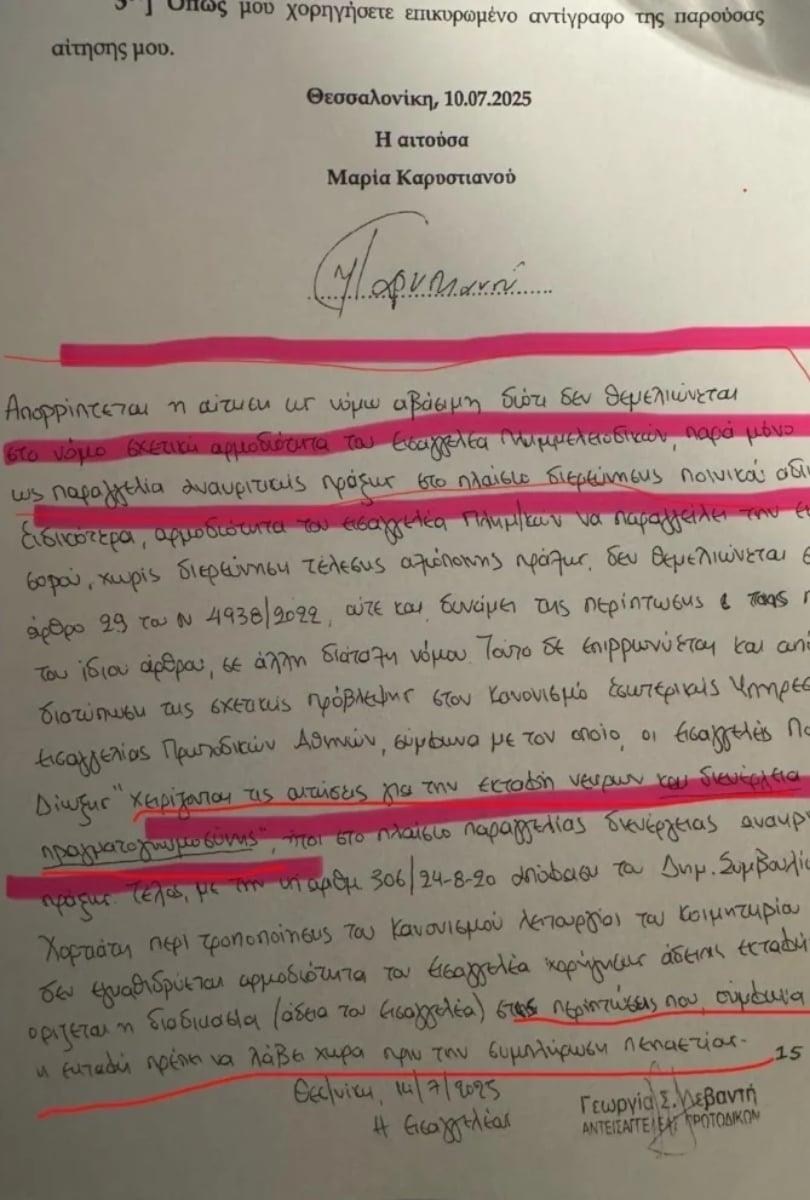 3ον] Όπως μου χορηγήσετε επικυρωμένο αντίγραφο της παρούσας
αίτησης μου.
Θεσσαλονίκη, 10.07.2025
Η αιτούσα
Μαρία Καρυστιανού
Απορρίπτεται η αίτηση ως νόμω αβάσιμη διότι δεν θεμελιώνεται
στο νόμο σχετική αρμοδιότητα του Εισαγγελέα Πλημμελειοδικών, παρά μόνο
ως παραγγελία ανακριτικής πράξης στο πλαίσιο διερεύνησης ποινικά
Ειδικότερα, αρμοδιότητα του εισαγγελέα Πλημ/κών να παραγγείλει την
σορού, χωρίς διερεύνηση τέλεσης αξιόποινης πράξης, δεν θεμελιώνεται
άρθρο 29 του Ν 4938/2022, ούτε και δυνάμει της περίπτωσης
του ίδιου άρθρου, σε άλλη διάταξη νόμου. Τούτο δε επιρρωνύεται και
διατύπωση της σχετικής πρόβλεψης στον Κανονισμό Εσωτερικής
Εισαγγελίας Πρωτοδικών Αθηνών, σύμφωνα με τον οποίο, οι Εισαγγελείς
Δίωξης "χειρίζονται τις αιτήσεις για την εκταφή νεκρών και διενέργεια
πραγματογνωμοσύνης", ήτοι στο πλαίσιο παραγγελίας διενέργειας
πράξης. Τέλος, με την υπ' αριθμ 306/24-8-20 απόφαση του Δημ. Συμβουλί
Χορτιάτη περί τροποποίησης του Κανονισμού λειτουργίας του Κοιμητηρίου
δεν εγκαθιδρύεται αρμοδιότητα του Εισαγγελέα χορήγησης άδειας
ορίζεται η διαδικασία (άδεια του Εισαγγελέα) στις περιπτώσεις που, σύμφωνα
η εκταφή πρέπει να λάβει χώρα πριν την συμπλήρωση πενταετίας.
15
Θεσ/νίκη, 14/7/2025
Η Εισαγγελέας
Γεωργία Σ. Λεβαντή
ΑΝΤΕΙΣΑΓΓΕΛΕΑΣ ΠΡΩΤΟΔΙΚΩΝ